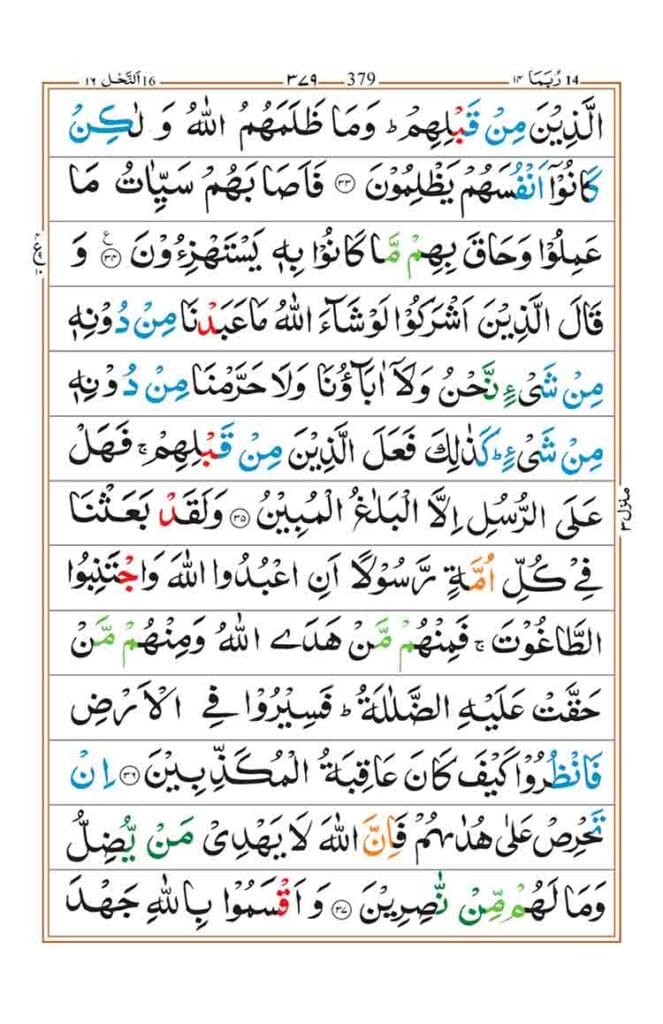 14 رُبَمَا ۱۴ 379 ۳۷۹ 16 اَلنَّحْل ۱۶
الَّذِيْنَ مِنْ قَبْلِهِمْ ؕ وَمَا ظَلَمَهُمُ اللّٰهُ وَ لٰكِنْ
كَانُوْۤا اَنْفُسَهُمْ يَظْلِمُوْنَ ﴿۳۳﴾ فَاَصَابَهُمْ سَيِّاٰتُ مَا
عَمِلُوْا وَحَاقَ بِهِمْ مَّا كَانُوْا بِهٖ يَسْتَهْزِءُوْنَ ﴿۳۴﴾ ع وَ
قَالَ الَّذِيْنَ اَشْرَكُوْا لَوْ شَآءَ اللّٰهُ مَا عَبَدْنَا مِنْ دُوْنِهٖ
مِنْ شَىْءٍ نَّحْنُ وَلَاۤ اٰبَآؤُنَا وَلَا حَرَّمْنَا مِنْ دُوْنِهٖ
مِنْ شَىْءٍ ؕ كَذٰلِكَ فَعَلَ الَّذِيْنَ مِنْ قَبْلِهِمْ ۚ فَهَلْ
عَلَى الرُّسُلِ اِلَّا الْبَلٰغُ الْمُبِيْنُ ﴿۳۵﴾ وَلَقَدْ بَعَثْنَا
فِىْ كُلِّ اُمَّةٍ رَّسُوْلًا اَنِ اعْبُدُوا اللّٰهَ وَاجْتَنِبُوا
الطَّاغُوْتَ ۚ فَمِنْهُمْ مَّنْ هَدَى اللّٰهُ وَمِنْهُمْ مَّنْ
حَقَّتْ عَلَيْهِ الضَّلٰلَةُ ؕ فَسِيْرُوْا فِى الْاَرْضِ
فَانْظُرُوْا كَيْفَ كَانَ عَاقِبَةُ الْمُكَذِّبِيْنَ ﴿۳۶﴾ اِنْ
تَحْرِصْ عَلٰى هُدٰىهُمْ فَاِنَّ اللّٰهَ لَا يَهْدِىْ مَنْ يُّضِلُّ
وَمَا لَهُمْ مِّنْ نّٰصِرِيْنَ ﴿۳۷﴾ وَ اَقْسَمُوْا بِاللّٰهِ جَهْدَ
منزل ۳